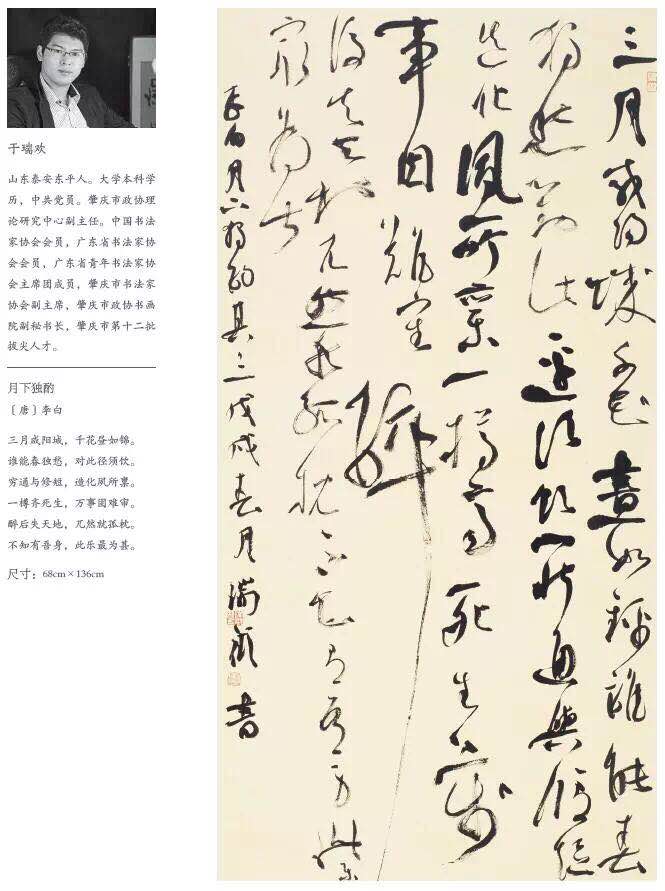 于瑞欢
山东泰安东平人。大学本科学
历，中共党员。肇庆市政协理
论研究中心副主任。中国书法
家协会会员，广东省书法家协
会会员，广东省青年书法家协
会主席团成员，肇庆市书法家
协会副主席，肇庆市政协书画
院副秘书长，肇庆市第十二批
拔尖人才。
月下独酌
〔唐〕李白
三月咸阳城，千花昼如锦。
谁能春独愁，对此径须饮。
穷通与修短，造化夙所禀。
一樽齐死生，万事固难审。
醉后失天地，兀然就孤枕。
不知有吾身，此乐最为甚。
尺寸：68cm×136cm
三月咸陽城千花晝如錦誰能春
獨愁對此徑須飲窮通與修短
造化夙所稟一樽齊死生萬
事固難審醉
後失天地兀然就孤枕不知有吾身此樂
最為甚
李白月下獨酌其三戊戌春月瑞歡書